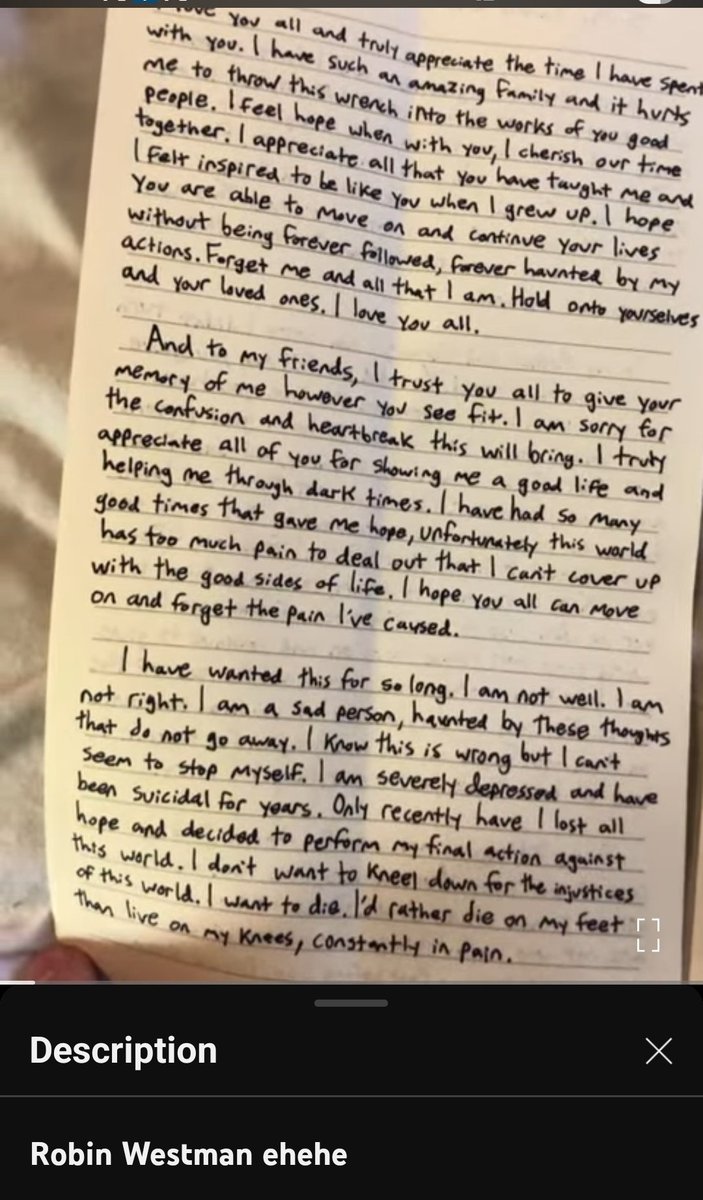 love you all and truly appreciate the time I have spent
with you. I have such an amazing family and it hurts
me to throw this wrench into the works of you good
people. I feel hope when with you, I cherish our time
together. I appreciate all that you have taught me and
I felt inspired to be like you when I grew up. I hope
You are able to move on and continue your lives
without being forever followed, forever haunted by my
actions. Forget me and all that I am. Hold onto yourselves
and your loved ones. I love you all.
And to my friends, I trust you all to give your
memory of me however you see fit. I am sorry for
the confusion and heartbreak this will bring. I truly
appreciate all of you for showing me a good life and
helping me through dark times. I have had so many
good times that gave me hope, unfortunately this world
has too much pain to deal out that I can't cover up
with the good sides of life. I hope you all can move
on and forget the pain I've caused.
I have wanted this for so long. I am not well. I am
not right. I am a sad person, haunted by these thoughts
that do not go away. I know this is wrong but I can't
seem to stop myself. I am severely depressed and have
been suicidal for years. Only recently have I lost all
hope and decided to perform my final action against
this world. I don't want to kneel down for the injustices
of this world. I want to die. I'd rather die on my feet
than live on my knees, constantly in pain.
Description
Robin Westman ehehe